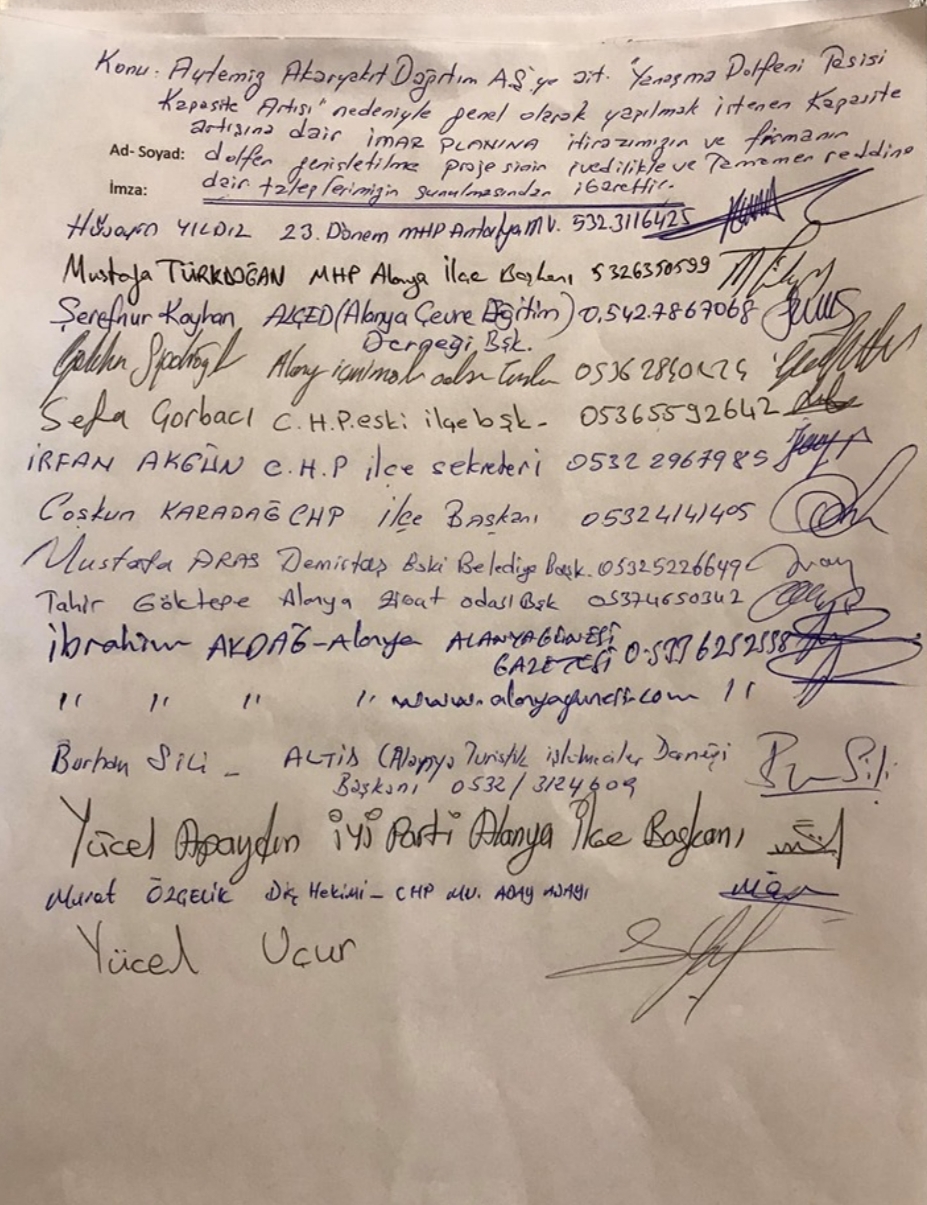 Konu: Aytemiz Akaryakıt Dağıtım A.Ş'ye ait. "Yanaşma Dolfeni Tesisi
Kapasite Artışı" nedeniyle genel olarak yapılmak istenen Kapasite
artışına dair İMAR PLANINA itirazımızın ve firmanın
Ad-Soyad: dolfen genişletilme projesinin ivedilikle ve Tamamen reddine
İmza: dair taleplerimizin sunulmasından ibarettir.
Hüseyin YILDIZ 23. Dönem MHP Antalya MV. 532.3116425
Mustafa TÜRKDOĞAN MHP Alanya İlçe Başkanı 5326350599
Şerefnur Kayhan ALÇED (Alanya Çevre Eğitim) 0.542.7867068
Derneği Bşk.
Alanya
Sefa Çorbacı C.H.P. eski ilçe bşk. 05365592642
İRFAN AKGÜN C.H.P ilçe sekreteri 0532 2967985
Coşkun KARADAĞ CHP İlçe Başkanı 05324141405
Mustafa ARAS Demirtaş Eski Belediye Başk. 05325226649
Tahir Göktepe Alanya Ziraat odası Bşk 05374650342
İbrahim AKDAĞ-Alanya ALANYAGÜNEŞİ
GAZETESİ
" " " " www.alanyagunesi.com "
Burhan Sili - ALTİD (Alanya Turistik işletmeciler Derneği
Başkanı 0532/3124609
Yücel Apaydın İYİ Parti Alanya İlçe Başkanı
Murat ÖZÇELİK Diş Hekimi - CHP MV. ADAY ADAYI
Yücel Uçur